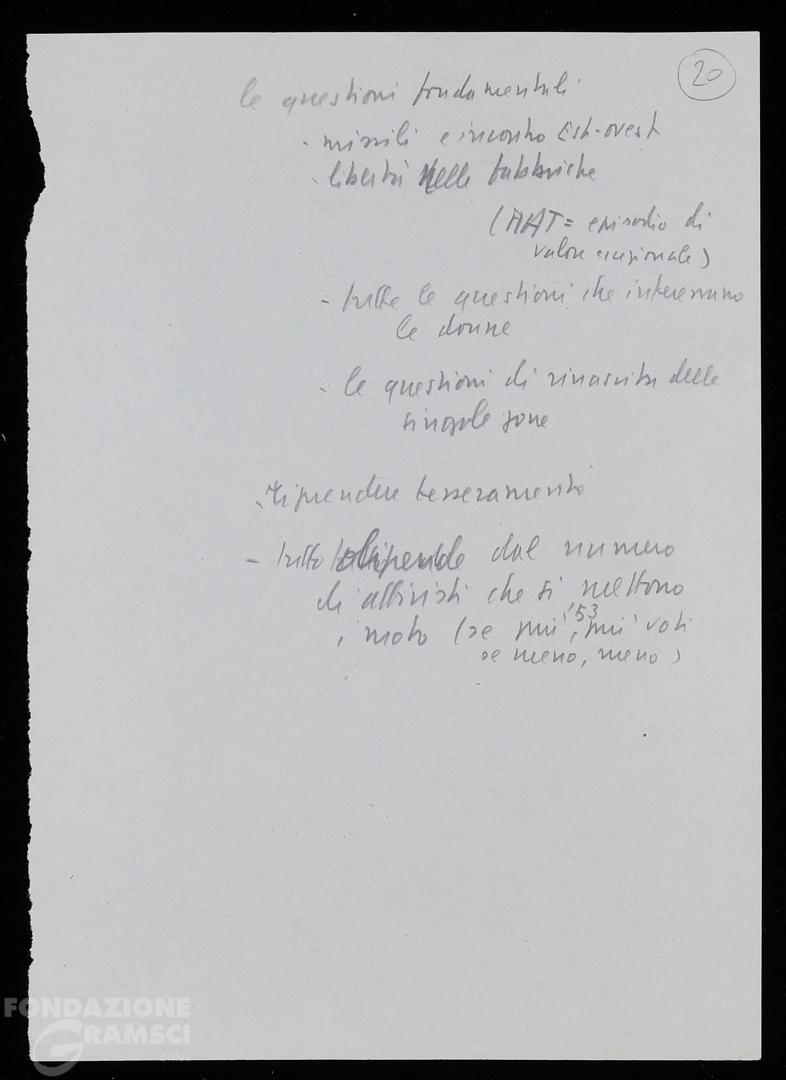 20
le questioni fondamentali
- missili e incontro Est-ovest
- libertà nelle fabbriche
( = episodio di
valore nazionale)
- tutte le questioni che interessano
le donne
- le questioni di rinascita delle
singole zone
- riprendere tesseramento
- tutto dipende dal numero
di attivisti che si mettono
in moto (se più, più voti
'53
se meno, meno)
FONDAZIONE
GRAMSCI
onlus